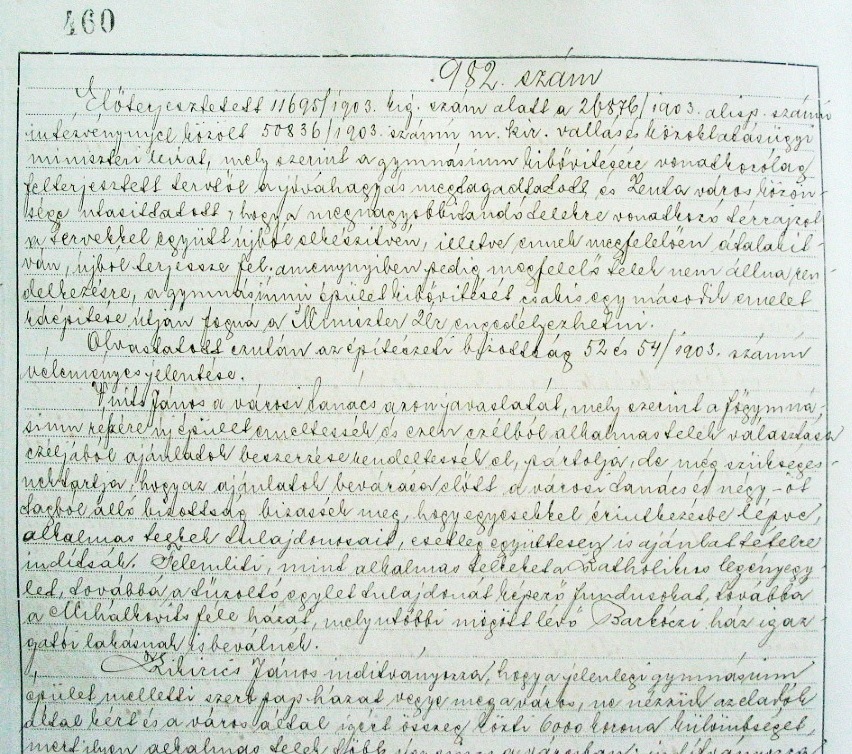 460
982. szám
Előterjesztetett 11695/1903. kig. szám alatt a 26876/1903. alisp. számú
intézvénynyel közölt 50836/1903. számú m. kir. vallás és közoktatásügyi
miniszteri leirat, mely szerint a gymnásium kibővitésére vonatkozólag
felterjesztett tervtől a jóváhagyás megtagadtatott és Zenta város közön-
sége utasittatott, hogy a megnagyobbitandó telekre vonatkozó térrajzot
a tervekkel együtt újból elkészitvén, illetve ennek megfelelően átalakit-
ván, újból terjessze fel, amenynyiben pedig megfelelő telek nem állna ren-
delkezésre, a gymnásiumi épület kibővitését csakis egy második emelet
ráépitése útján fogná a Miniszter Úr engedélyezhetni.
Olvastatott ezután az épitészeti bizottság 52 és 54/1903. számú
véleményes jelentése.
Vuits János a városi tanács azon javaslatát, mely szerint a főgymná-
sium részére új épület emeltessék és ezen czélból alkalmas telek választása
czéljából ajánlatok beszerzése rendeltessék el, pártolja, de még szükséges-
nek tartja, hogy az ajánlatok bevárása előtt a városi tanács és négy-öt
tagból álló bizottság bizassék meg, hogy egyesekkel érintkezésbe lépve,
alkalmas telkek tulajdonosait, esetleg együttesen is ajánlattételre
inditsák. Felemliti, mint alkalmas telkeket a Katholikus legényegy-
let, továbbá a tűzoltó egylet tulajdonát képező fundusokat, továbbá
a Mihálkovits féle házat, mely utóbbi mögött lévő Barkóczi ház igaz-
gatói lakásnak is beválnék.
János inditványozza, hogy a jelenlegi gymnásium
épület melletti szerb pap-házat vegye meg a város, ne nézzük az eladók
által kért és a város által igért összeg közti 6000 korona külömbséget,
mert ilyen alkalmas telek több